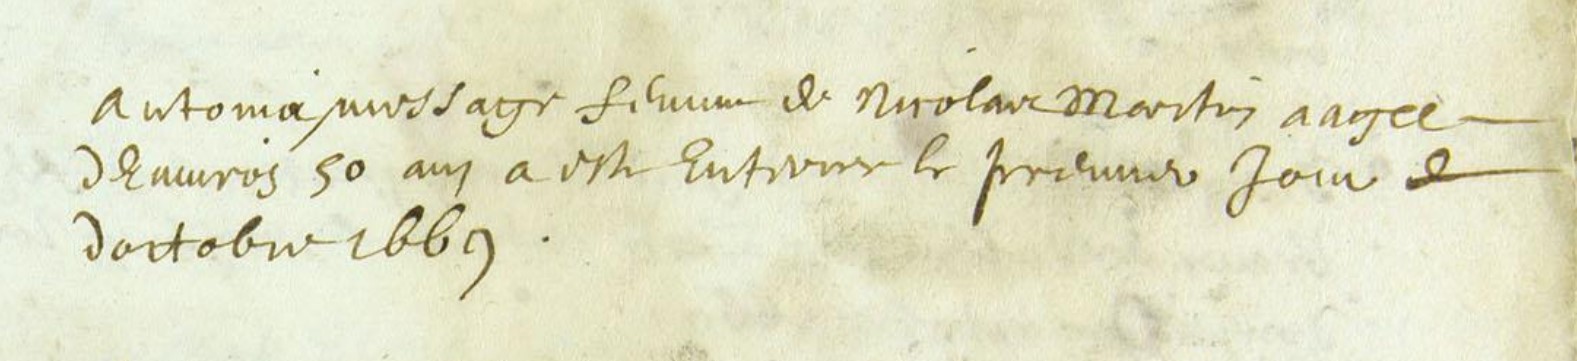 Antonia messager femme de Nicolas Martin aagee
Denuiron 50 ans a este Enterree le premier Jour de
doctobre 1669